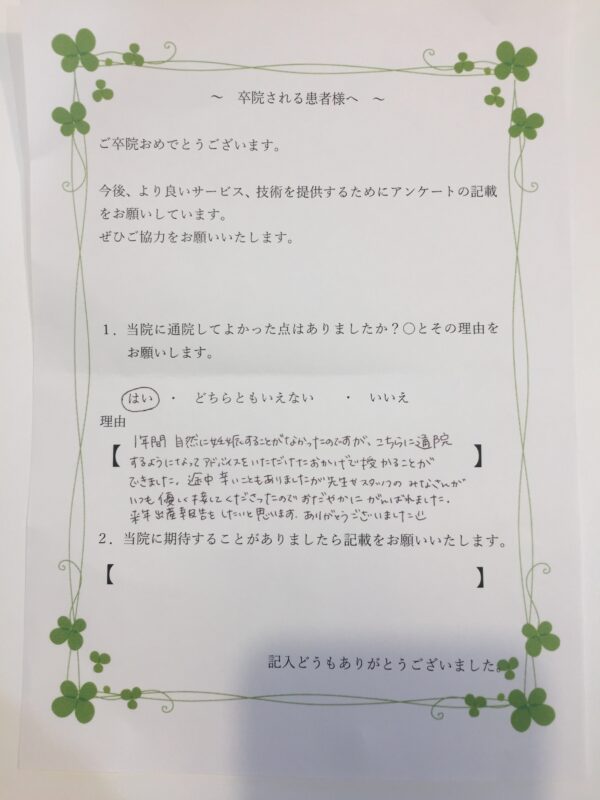 ～ 卒院される患者様へ ～
ご卒院おめでとうございます。
今後、より良いサービス、技術を提供するためにアンケートの記載
をお願いしています。
ぜひご協力をお願いいたします。
1．当院に通院してよかった点はありましたか？○とその理由を
お願いします。
はい ・ どちらともいえない ・ いいえ
理由
【 1年間 自然に妊娠することがなかったのですが、こちらに通院 】
するようになってアドバイスをいただけたおかげで授かることが
できました。途中 辛いこともありましたが先生やスタッフの みなさんが
いつも 優しく接してくださったのでおだやかに がんばれました。
来年出産報告をしたいと思います。ありがとうございました
2．当院に期待することがありましたら記載をお願いいたします。
【 】
記入どうもありがとうございました。